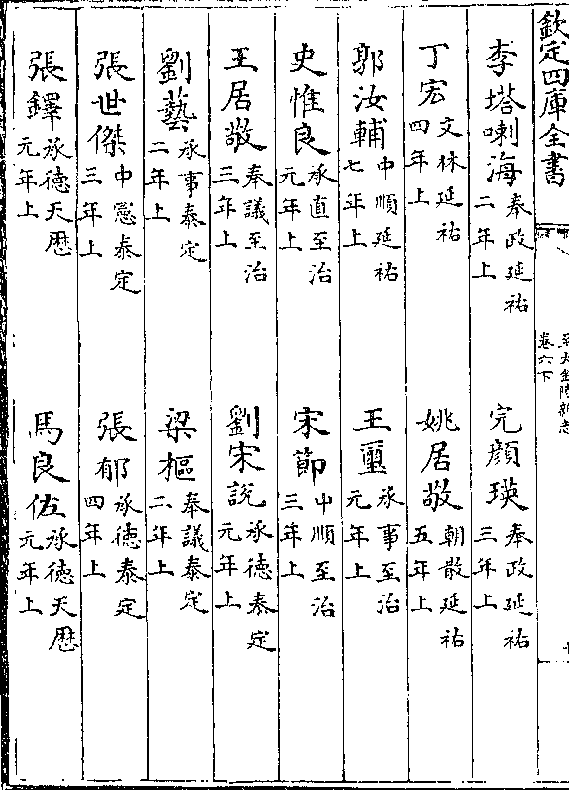 欽定四庫全書
至大金陵新志
卷六下
李塔喇海奉政延祐二年上　完顔瑛奉政延祐三年上
丁宏文林延祐四年上　姚居敬朝散延祐五年上
郭汝輔中順延祐七年上　王璽承事至治元年上
史惟良承直至治元年上　宋節中順至治三年上
王居敬奉議至治三年上　劉宋説承德泰定元年上
劉藝承事泰定二年上　梁樞奉議泰定二年上
張世傑中憲泰定三年上　張郁承德泰定四年上
張鐸承德天厯元年上　馬良佐承德天厯元年上